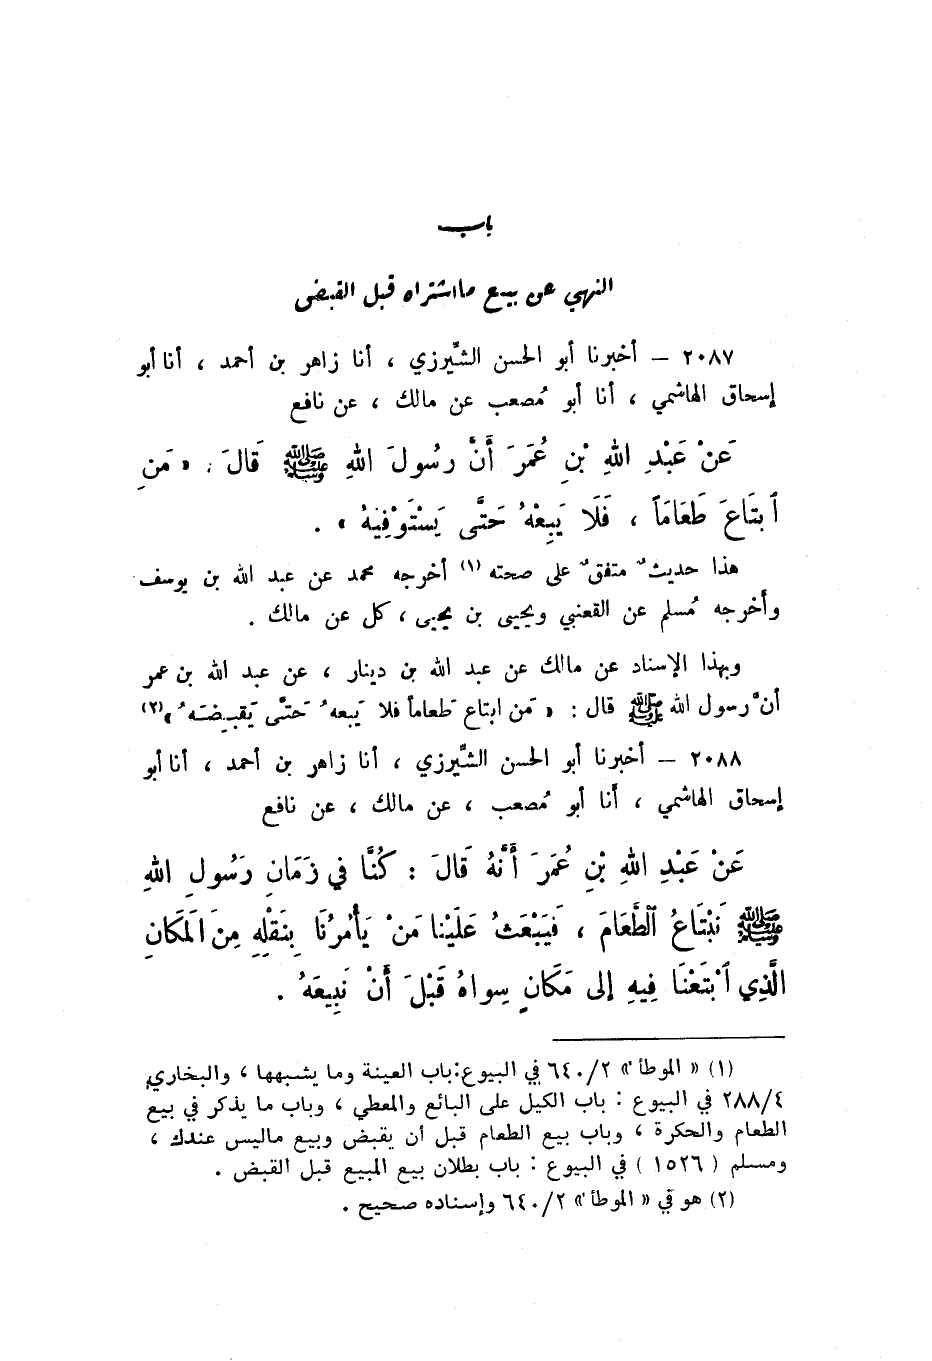 باب
النهي عن بيع ما اشتراه قبل القبض
٢٠٨٧ – أخبرنا أبو الحسن الشَّيرزي ، أنا زاهر بن أحمد ، أنا أبو
إسحاق الهاشمي ، أنا أبو مُصعب عن مالك ، عن نافع
عَنْ عَبْدِ اللهِ بْنِ عُمَرَ أَنَّ رسُولَ اللهِ ﷺ قَالَ : « مَنِ
ٱبتَاعَ طَعَامَاً ، فَلَا يَبِعْهُ حَتَّى يَسْتَوْفِيَهُ » .
هذا حديثٌ متفقٌ على صحته (١) أخرجه محمد عن عبد الله بن يوسف
وأخرجه مُسلم عن القعنبي ويحيى بن يحيى ، كل عن مالك .
وبهذا الإسناد عن مالك عن عبد الله بن دينار ، عن عبد الله بن عمر
أنَّ رسول الله ﷺ قال : « مَن ابتاع طَعاماً فلا يَبعهُ حَتَّى يَقبِضَهُ » (٢)
٢٠٨٨ – أخبرنا أبو الحسن الشَّيرزي ، أنا زاهر بن أحمد ، أنا أبو
إسحاق الهاشمي ، أنا أبو مُصعب ، عن مالك ، عن نافع
عَنْ عَبْدِ اللهِ بْنِ عُمَرَ أَنَّهُ قَالَ : كُنَّا في زَمَانِ رَسُولِ اللهِ
ﷺ نَبْتَاعُ ٱلطَّعَامَ ، فَيَبْعَثُ عَلَيْنا مَنْ يَأْمُرُنَا بِنَقْلِهِ مِنَ الَمكَانِ
الَّذِي ٱبْتَعْنَا فِيهِ إلى مَكَانٍ سِواهُ قَبْلَ أَنْ نَبِيعَهُ .
(١) « الموطأ » ٦٤٠/٢ في البيوع:باب العينة وما يشبهها ، والبخاري
٢٨٨/٤ في البيوع : باب الكيل على البائع والمعطي ، وباب ما يذكر في بيع
الطعام والحكرة ، وباب بيع الطعام قبل أن يقبض وبيع ماليس عندك ،
ومسلم ( ١٥٢٦ ) في البيوع : باب بطلان بيع المبيع قبل القبض .
(٢) هو في « الموطأ » ٦٤٠/٢ وإسناده صحيح .